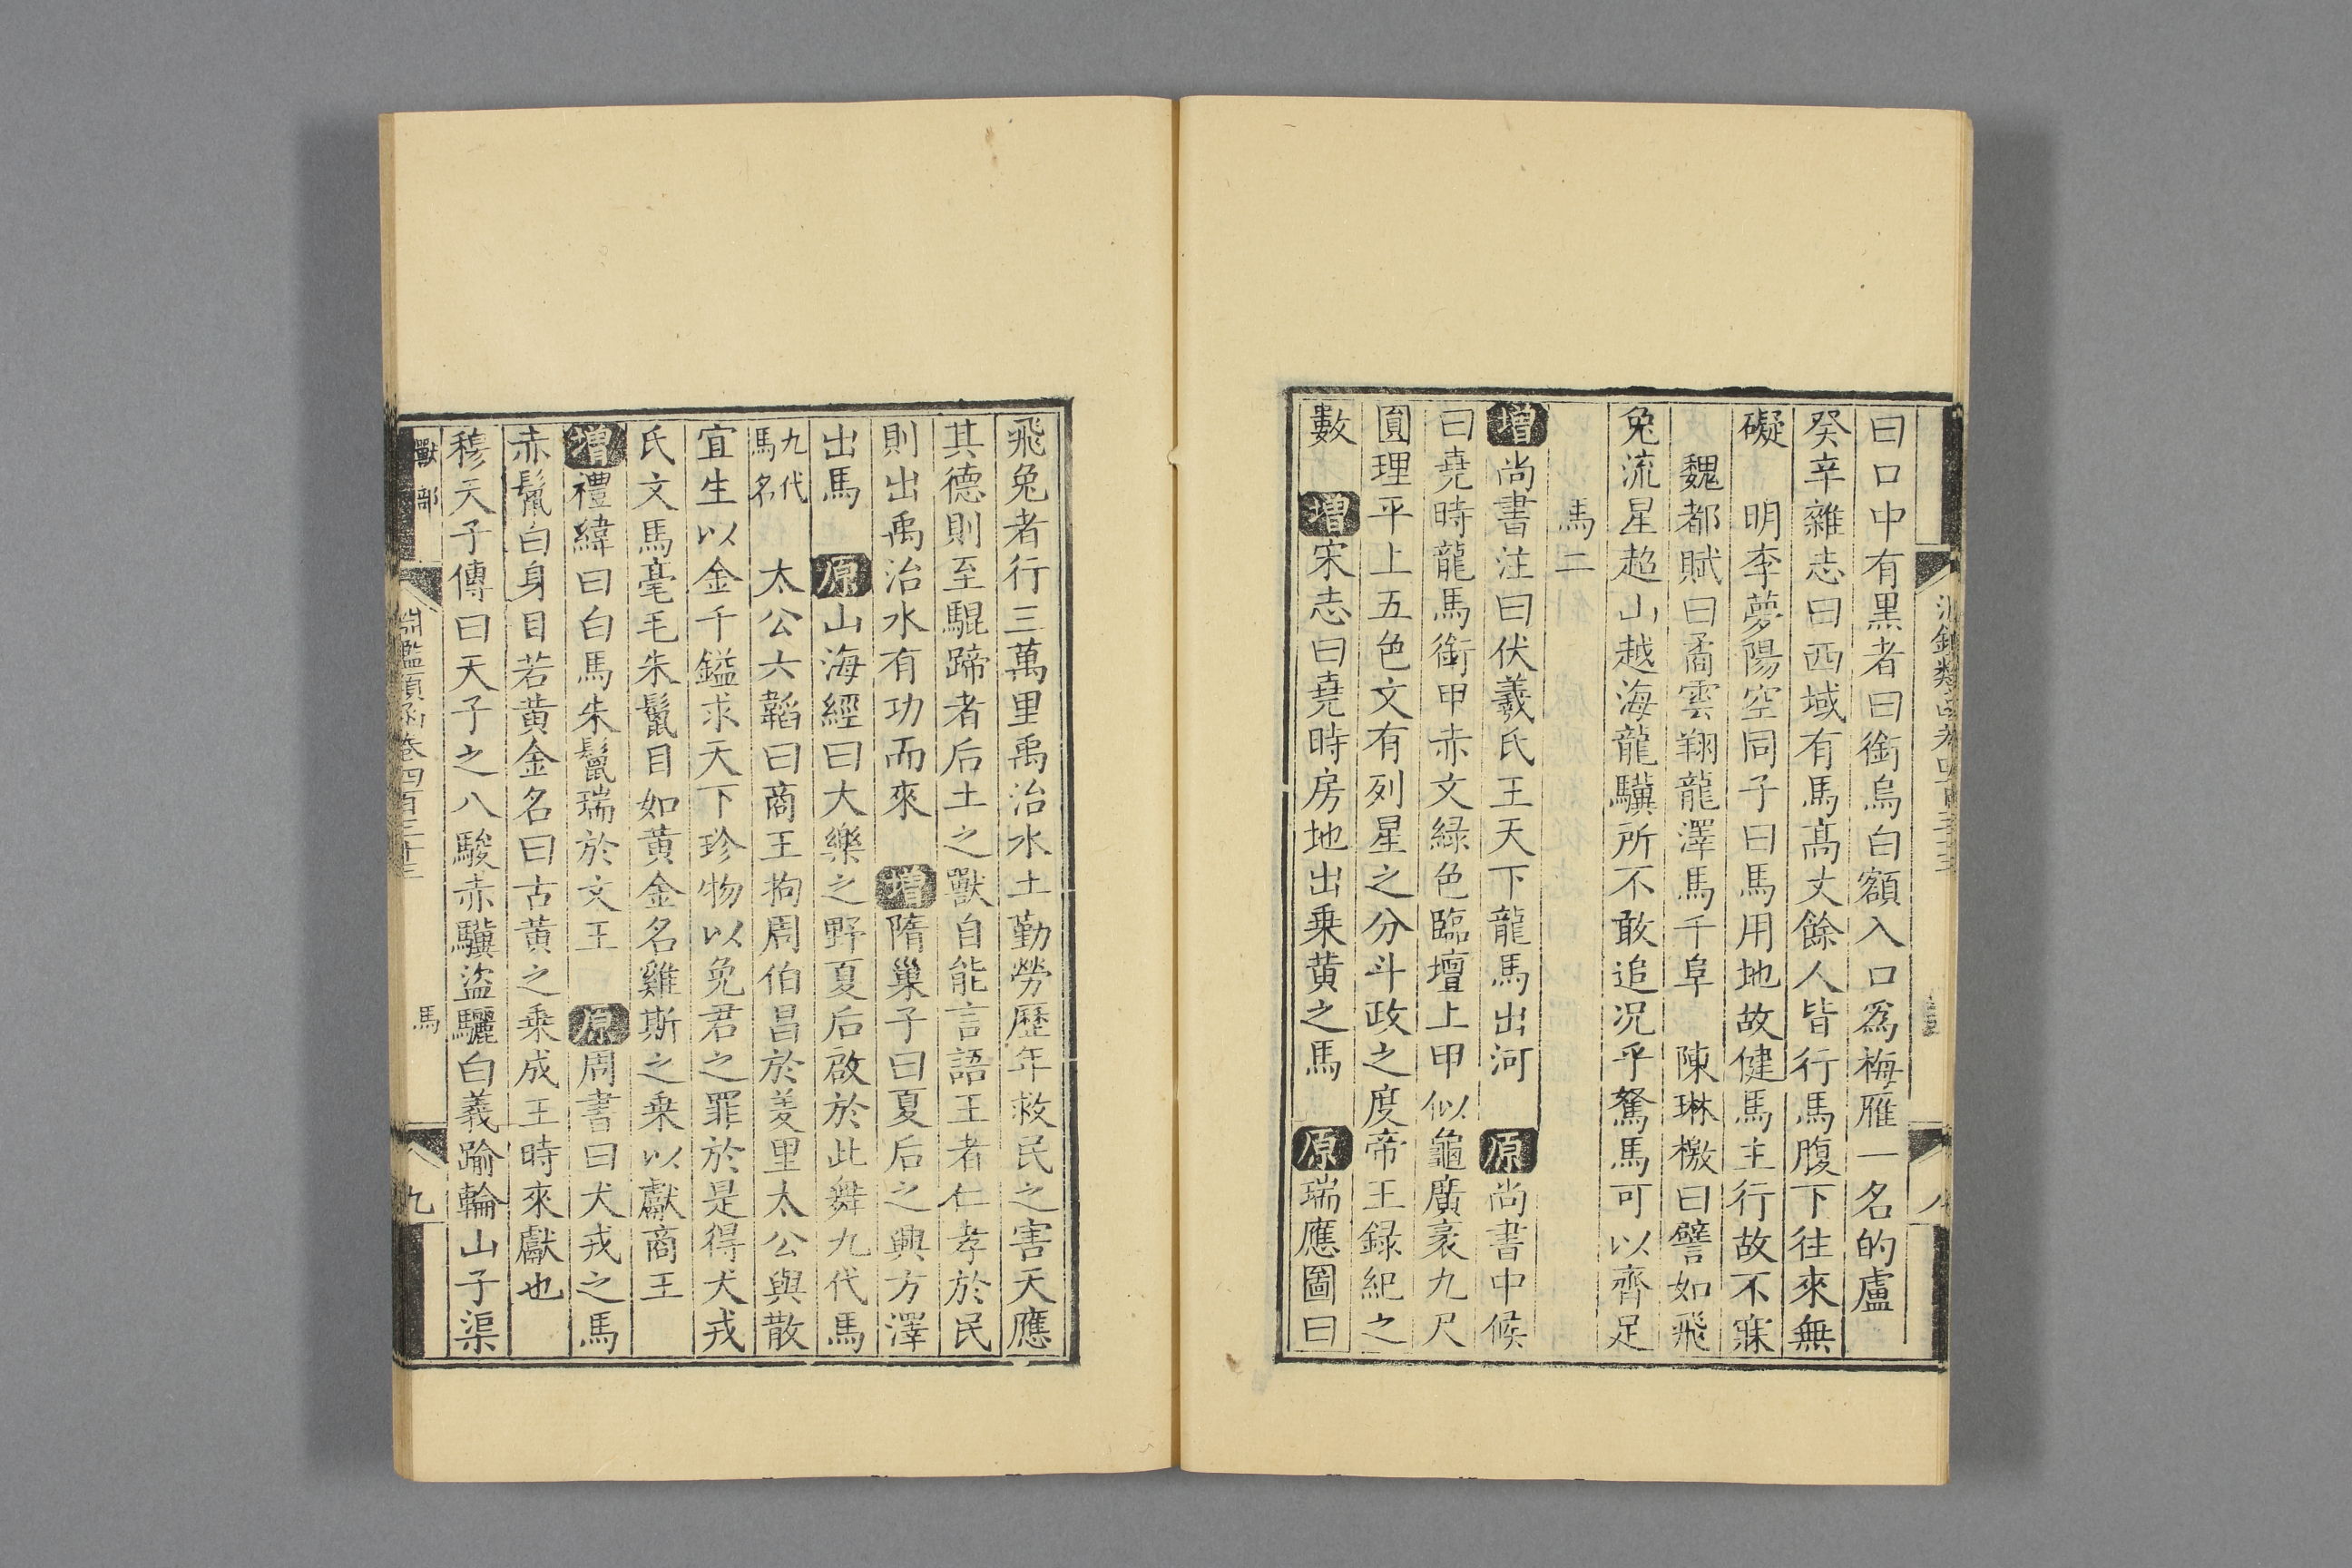 曰口中有黑者曰銜烏白額入口爲梅雁一名的盧
癸辛雜志曰西域有馬高丈餘人皆行馬腹下往來無
礙　明李夢陽空同子曰馬用地故健馬主行故不寐
魏都賦曰矞雲翔龍澤馬千阜　陳琳檄曰譬如飛
兔流星超山越海龍驥所不敢追况乎駑馬可以齊足
馬二
增尚書注曰伏羲氏王天下龍馬出河　原尚書中候
曰堯時龍馬銜甲赤文綠色臨壇上甲似龜廣袤九尺
圓理平上五色文有列星之分斗政之度帝王錄紀之
數　增宋志曰堯時房地出乗黄之馬　原瑞應圖曰
飛兔者行三萬里禹治水土勤勞歷年救民之害天應
其德則至騉蹄者后土之獸自能言語王者仁孝於民
則出禹治水有功而來　增隋巢子曰夏后之興方澤
出馬　原山海經曰大樂之野夏后啟於此舞九代馬
九代馬名　太公六韜曰商王拘周伯昌於羑里太公與散
宜生以金千鎰求天下珍物以免君之罪於是得犬戎
氏文馬毫毛朱鬣目如黄金名雞斯之乗以獻商王
增禮緯曰白馬朱鬣瑞於文王　原周書曰犬戎之馬
赤鬣白身目若黄金名曰古黄之乗成王時來獻也
穆天子傳曰天子之八駿赤驥盜驪白義踰輪山子渠
獸部
淵鑑類函卷四百三十三
馬
九